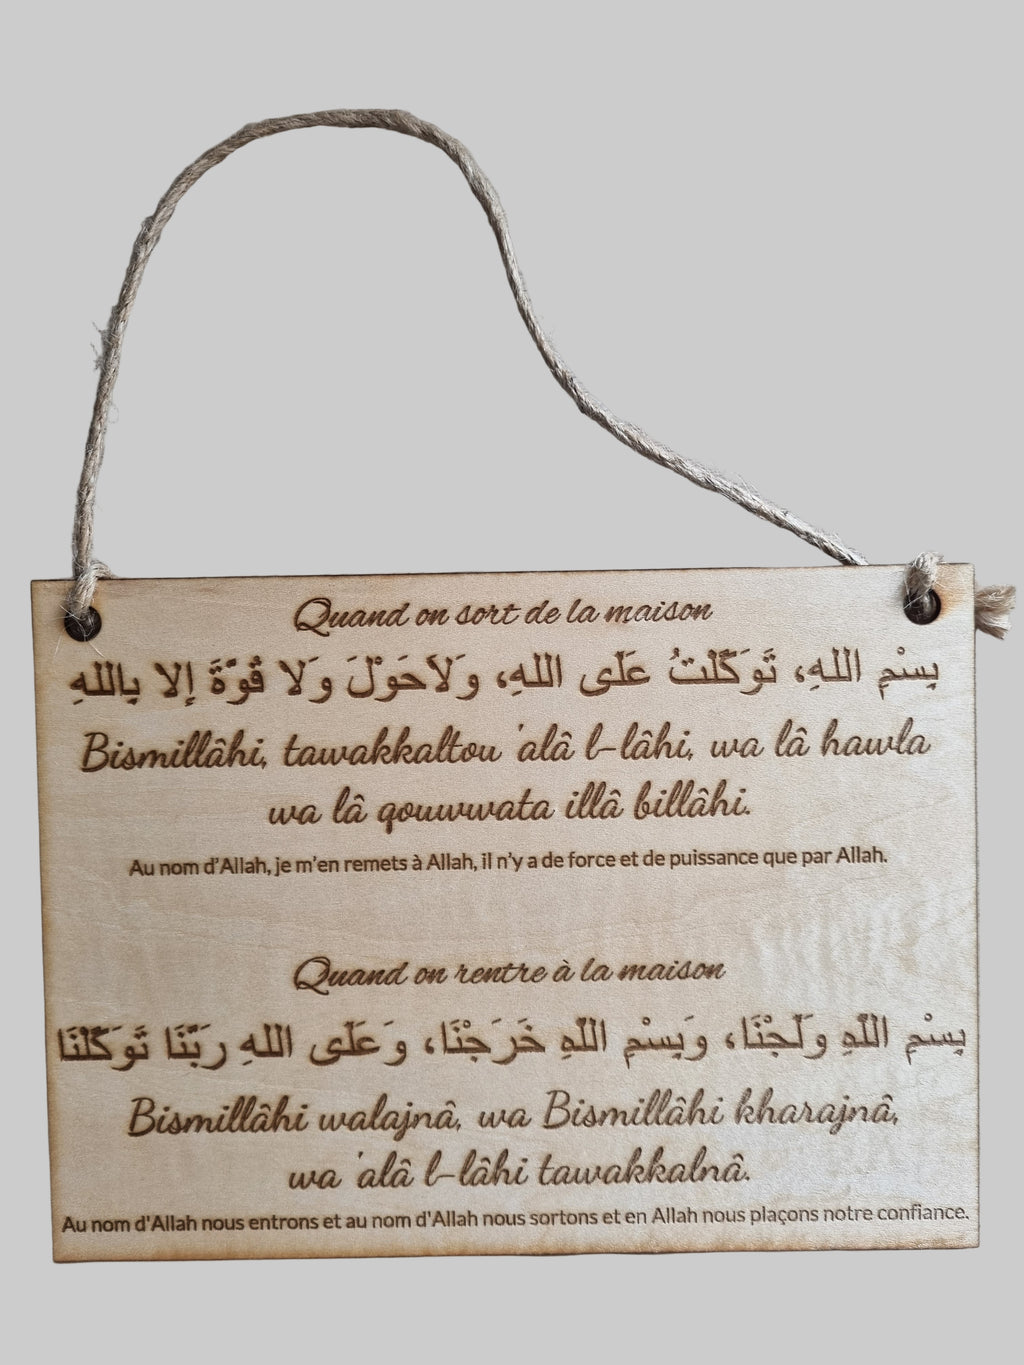 Quand on sort de la maison
بِسْمِ اللهِ، تَوَكَّلْتُ عَلَى اللهِ، وَلَاحَوْلَ وَلا قُوَّةَ إِلا بِاللهِ
Bismillâhi, tawakkaltou 'alâ l-lâhi, wa lâ hawla
wa lâ qouwwata illâ billâhi.
Au nom d'Allah, je m'en remets à Allah, il n'y a de force et de puissance que par Allah.
Quand on rentre à la maison
بِسْمِ اللّهِ وَلَجْنَا، وَبِسْمِ اللّهِ خَرَجْنَا، وَعَلَى اللهِ رَبِّنَا تَوَكَّلْنَا
Bismillâhi walajnâ, wa Bismillâhi kharajnâ,
wa 'alâ l-lâhi tawakkalnâ.
Au nom d'Allah nous entrons et au nom d'Allah nous sortons et en Allah nous plaçons notre confiance.